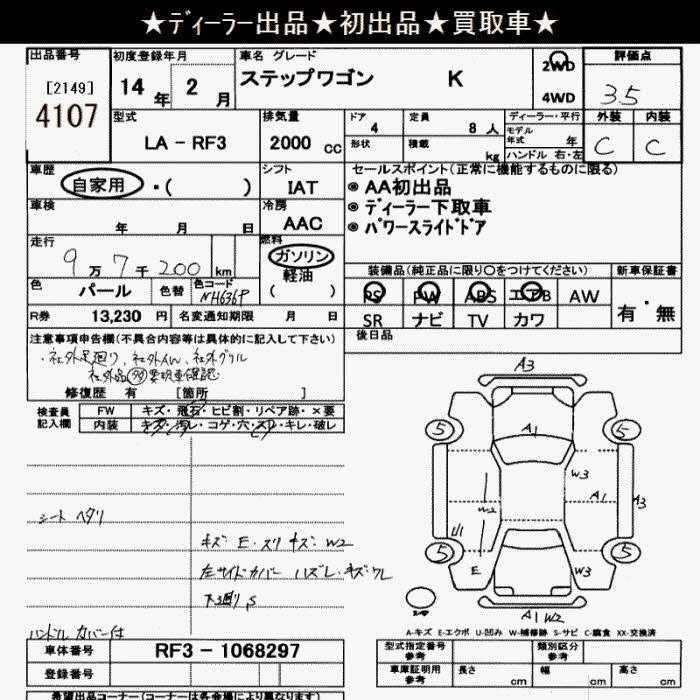 ★ディーラー出品★初出品★買取車★
出品番号
[2149]
4107
初度登録年月
14年 2月
車名 グレード
ステップワゴン K
2WD
4WD
評価点
3.5
外装 内装
C C
型式
LA－RF3
排気量
2000 cc
ドア
4
定員
8人
形状
積載
kg
ディーラー・平行
モデル年式 年
ハンドル 右・左
車歴
自家用・( )
シフト
IAT
車検
年 月 日
冷房
AAC
走行
9万7千200 km
燃料
ガソリン
軽油
( )
色
パール
色替
色コード
NH636P
R券 13,230 円 名変通期限 月 日
セールスポイント(正常に機能するものに限る)
◎ AA初出品
◎ ディーラー下取車
◎ パワースライドドア
装備品(純正品に限り○をつけてください)
PS PW ABS エアB AW
SR ナビ TV カワ
新車保証書
有・無
後日品
注意事項申告欄(不具合内容等は具体的に記入して下さい)
・社外足廻り、社外AW、社外グリル
社外品多要現車確認
修復歴 有 [箇所 ]
検査員
記入欄
FW キズ・飛石・ヒビ割・リペア跡・×要
内装 キズ・汚レ・コゲ・穴・スレ・キレ・破レ
シート ヘタリ
キズ E・スリキズ・W2
左サイドカバー ハズレ・キズワレ
下廻り S
ハンドル カバー付
A3
5 5
A1
W3
W2
A1 A3
U1
5 5
E W3
A1 W2
A-キズ E-エクボ U-凹み W-補修跡 S-サビ C-腐食 XX-交換済
車体番号 RF3－1068297
登録番号
型式指定番号
参考
類別区分
参考
車庫証明用
参考
長さ cm 幅 cm 高さ cm
希望出品コーナー(コーナーは各会場により異なります)